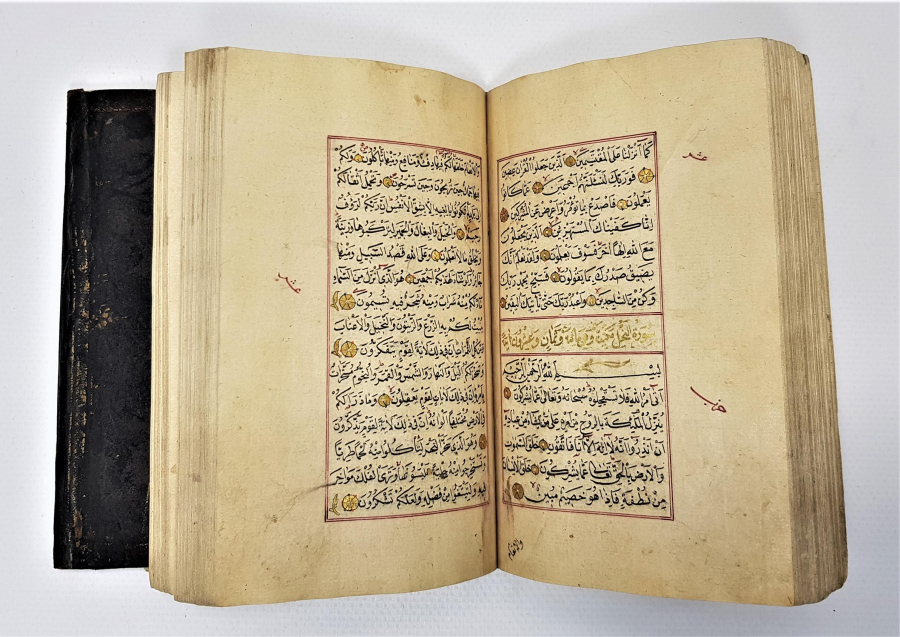 كَمَا أَنْزَلْنَا عَلَى الْمُقْتَسِمِينَ الَّذِينَ جَعَلُوا الْقُرْآنَ عِضِينَ
عشر
فَوَرَبِّكَ لَنَسْئَلَنَّهُمْ أَجْمَعِينَ عَمَّا كَانُوا
يَعْمَلُونَ فَاصْدَعْ بِمَا تُؤْمَرُ وَأَعْرِضْ عَنِ الْمُشْرِكِينَ
إِنَّا كَفَيْنَاكَ الْمُسْتَهْزِئِينَ الَّذِينَ يَجْعَلُونَ
مَعَ اللهِ إِلَهًا آخَرَ فَسَوْفَ يَعْلَمُونَ وَلَقَدْ نَعْلَمُ أَنَّكَ
يَضِيقُ صَدْرُكَ بِمَا يَقُولُونَ فَسَبِّحْ بِحَمْدِ رَبِّكَ
وَكُنْ مِنَ السَّاجِدِينَ وَاعْبُدْ رَبَّكَ حَتَّى يَأْتِيَكَ الْيَقِينُ
سورة النحل مكية وهي مائة وثمان وعشرون آية
بِسْمِ اللهِ الرَّحْمَنِ الرَّحِيمِ
أَتَى أَمْرُ اللهِ فَلَا تَسْتَعْجِلُوهُ سُبْحَانَهُ وَتَعَالَى عَمَّا يُشْرِكُونَ
حزب
يُنَزِّلُ الْمَلَئِكَةَ بِالرُّوحِ مِنْ أَمْرِهِ عَلَى مَنْ يَشَاءُ مِنْ عِبَادِهِ
أَنْ أَنْذِرُوا أَنَّهُ لَا إِلَهَ إِلَّا أَنَا فَاتَّقُونِ خَلَقَ السَّمَوَاتِ
وَالْأَرْضَ بِالْحَقِّ تَعَالَى عَمَّا يُشْرِكُونَ خَلَقَ الْإِنْسَانَ
مِنْ نُطْفَةٍ فَإِذَا هُوَ خَصِيمٌ مُبِينٌ
والانعام
وَالْأَنْعَامَ خَلَقَهَا لَكُمْ فِيهَا دِفْءٌ وَمَنَافِعُ وَمِنْهَا تَأْكُلُونَ وَلَكُمْ
فِيهَا جَمَالٌ حِينَ تُرِيحُونَ وَحِينَ تَسْرَحُونَ وَتَحْمِلُ أَثْقَالَكُمْ
إِلَى بَلَدٍ لَمْ تَكُونُوا بَالِغِيهِ إِلَّا بِشِقِّ الْأَنْفُسِ إِنَّ رَبَّكُمْ لَرَؤُفٌ
رَحِيمٌ وَالْخَيْلَ وَالْبِغَالَ وَالْحَمِيرَ لِتَرْكَبُوهَا وَزِينَةً
وَيَخْلُقُ مَا لَا تَعْلَمُونَ وَعَلَى اللهِ قَصْدُ السَّبِيلِ وَمِنْهَا
جَائِرٌ وَلَوْ شَاءَ لَهَدَيكُمْ أَجْمَعِينَ هُوَ الَّذِي أَنْزَلَ مِنَ السَّمَاءِ
عشر
مَاءً لَكُمْ مِنْهُ شَرَابٌ وَمِنْهُ شَجَرٌ فِيهِ تُسِيمُونَ
يُنْبِتُ لَكُمْ بِهِ الزَّرْعَ وَالزَّيْتُونَ وَالنَّخِيلَ وَالْأَعْنَابَ
وَمِنْ كُلِّ الثَّمَرَاتِ إِنَّ فِي ذَلِكَ لَآيَةً لِقَوْمٍ يَتَفَكَّرُونَ
وَسَخَّرَ لَكُمُ اللَّيْلَ وَالنَّهَارَ وَالشَّمْسَ وَالْقَمَرَ وَالنُّجُومُ مُسَخَّرَاتٌ
بِأَمْرِهِ إِنَّ فِي ذَلِكَ لَآيَاتٍ لِقَوْمٍ يَعْقِلُونَ وَمَا ذَرَأَ لَكُمْ
فِي الْأَرْضِ مُخْتَلِفًا أَلْوَانُهُ إِنَّ فِي ذَلِكَ لَآيَةً لِقَوْمٍ يَذَّكَّرُونَ
وَهُوَ الَّذِي سَخَّرَ الْبَحْرَ لِتَأْكُلُوا مِنْهُ لَحْمًا طَرِيًّا
وَتَسْتَخْرِجُوا مِنْهُ حِلْيَةً تَلْبَسُونَهَا وَتَرَى الْفُلْكَ مَوَاخِرَ
فِيهِ وَلِتَبْتَغُوا مِنْ فَضْلِهِ وَلَعَلَّكُمْ تَشْكُرُونَ